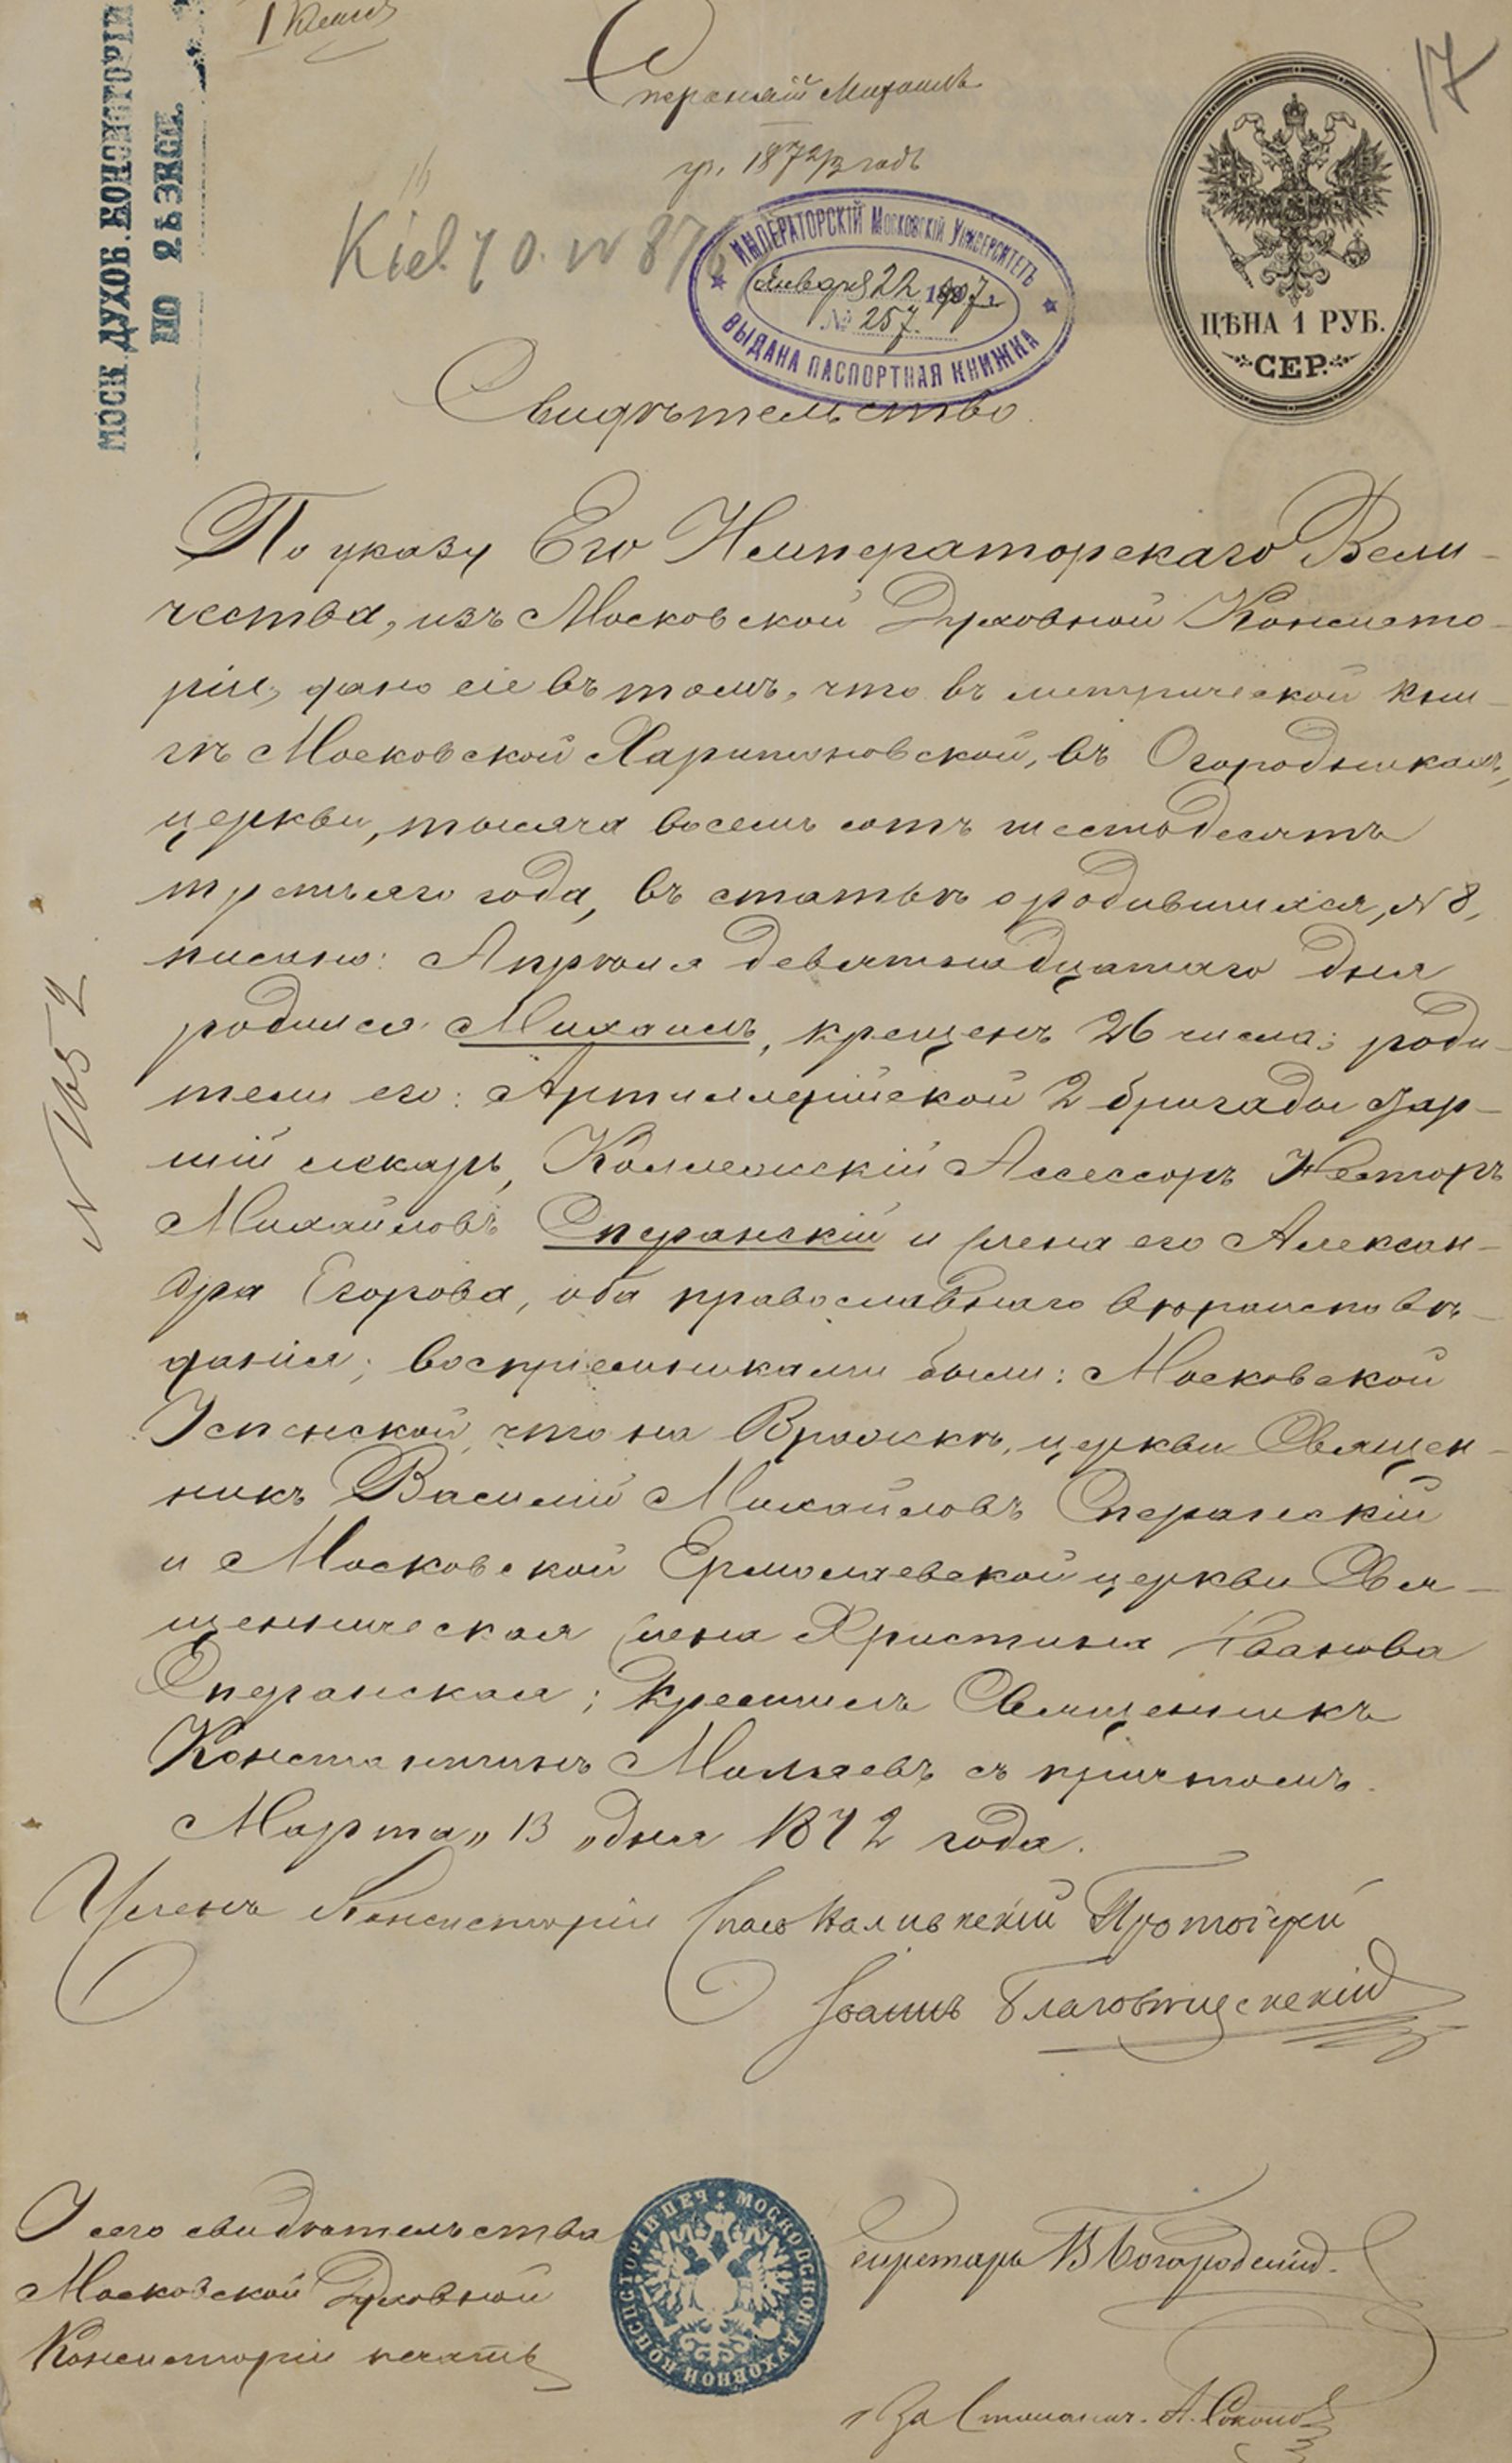 МОСК. ДУХОВ. КОНСИСТОРІИ
ПО 2й ЭКСП.
Сперанскій Михаилъ
1872/3 годъ
17
ИМПЕРАТОРСКІЙ МОСКОВСКІЙ УНИВЕРСИТЕТЪ
Января 22 1907 г.
№ 257.
ВЫДАНА ПАСПОРТНАЯ КНИЖКА
ЦѢНА 1 РУБ.
СЕР.
Свидѣтельство.
По указу Его Императорскаго Вели-
чества, изъ Московской Духовной Консисто-
ріи, дано сіе въ томъ, что въ метрической кни-
гѣ Московской Харитоновской, въ Огородникахъ,
церкви, тысяча восемь сотъ шестьдесятъ
третьяго года, въ статьѣ о родившихся, № 8,
писано: Апрѣля девятнадцатаго дня
родился Михаилъ, крещенъ 26 числа; роди-
тели его: Артиллерійской 2 бригады
лекарь, Коллежскій Ассессоръ Несторъ
Михайловъ Сперанскій и жена его Алексан-
дра Егорова, оба православнаго вѣроисповѣ-
данія; воспріемниками были: Московской
Успенской, что на Вражкѣ, церкви Священ-
никъ Василій Михайловъ Сперанскій
и Московской Ермолаевской церкви Свя-
щенническая жена Христина Иванова
Сперанская; крестилъ Священникъ
Константинъ съ причтомъ.
Марта „13„ дня 1872 года.
Членъ Консисторіи Спасоналивкскій Протоіерей
Іоаннъ Благовѣщенскій
№ 1652
У сего свидѣтельства
Московской Духовной
Консисторіи печать
МОСКОВСКОЙ ДУХОВНОЙ КОНСИСТОРІИ ПЕЧ
Секретарь В Богородскій
За Столонач. А. Соколов